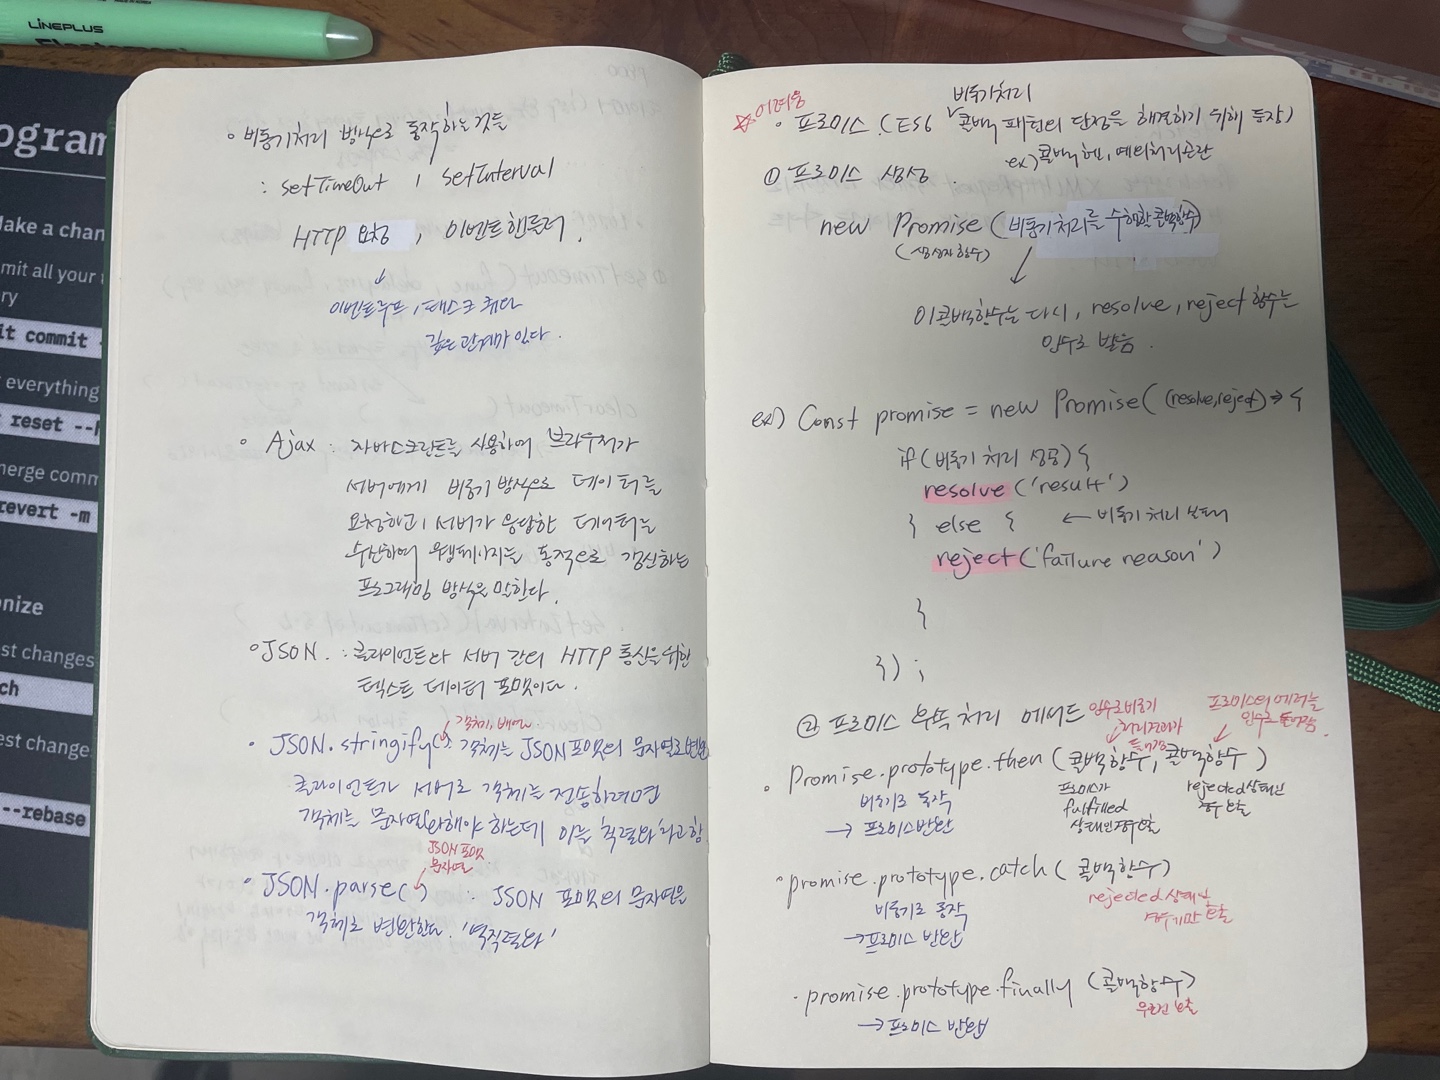 LINEPLUS
ogram
Make a chan
mit all your
ry
it commit -
everything
t reset --h
merge comm
revert -m
onize
est changes
ch
est change
--rebase
• 비동기처리 방식으로 동작하는것들
: setTimeOut , setInterval
HTTP 요청 , 이벤트핸들러 .
↓
이벤트루프, 태스크 큐와
깊은 관계가 있다 .
• Ajax : 자바스크립트를 사용하여 브라우저가
서버에게 비동기 방식으로 데이터를
요청하고, 서버가 응답한 데이터를
수신하여 웹페이지를 동적으로 갱신하는
프로그래밍 방식을 말한다.
• JSON . : 클라이언트와 서버 간의 HTTP 통신을위한
텍스트 데이터 포맷이다.
객체, 배열
• JSON.stringify( ) : 객체를 JSON포맷의 문자열로변환
클라이언트가 서버로 객체를 전송하려면
객체를 문자열화해야 하는데 이를 '직렬화'라고함
JSON포맷
문자열
• JSON.parse( ) : JSON 포맷의 문자열을
객체로 변환한다. '역직렬화'
비동기처리
☆어려움
• 프로미스 (ES6 콜백 패턴의 단점을 해결하기 위해 등장)
ex) 콜백 헬, 예외처리곤란
① 프로미스 생성
new Promise (비동기처리를 수행할콜백함수)
(생성자함수)
이콜백함수는 다시, resolve, reject 함수는
인수로 받음 .
ex) Const promise = new Promise( (resolve,reject) => {
if (비동기 처리 성공) {
resolve ('result')
} else { ← 비동기 처리 실패
reject ('failure reason')
}
}) ;
② 프로미스 후속 처리 메서드
인수로비동기
처리결과가
들어감
프로미스의에러를
인수로 들어감.
• Promise.prototype.then (콜백함수, 콜백함수 )
비동기로 동작
→ 프로미스반환
프로미스가
fulfilled
상태면 호출
rejected상태면
호출
• promise.prototype.catch ( 콜백함수)
비동기로 동작
→ 프로미스 반환
rejected 상태인
경우만 호출
• promise.prototype.finally (콜백함수)
→ 프로미스 반환
무조건 호출